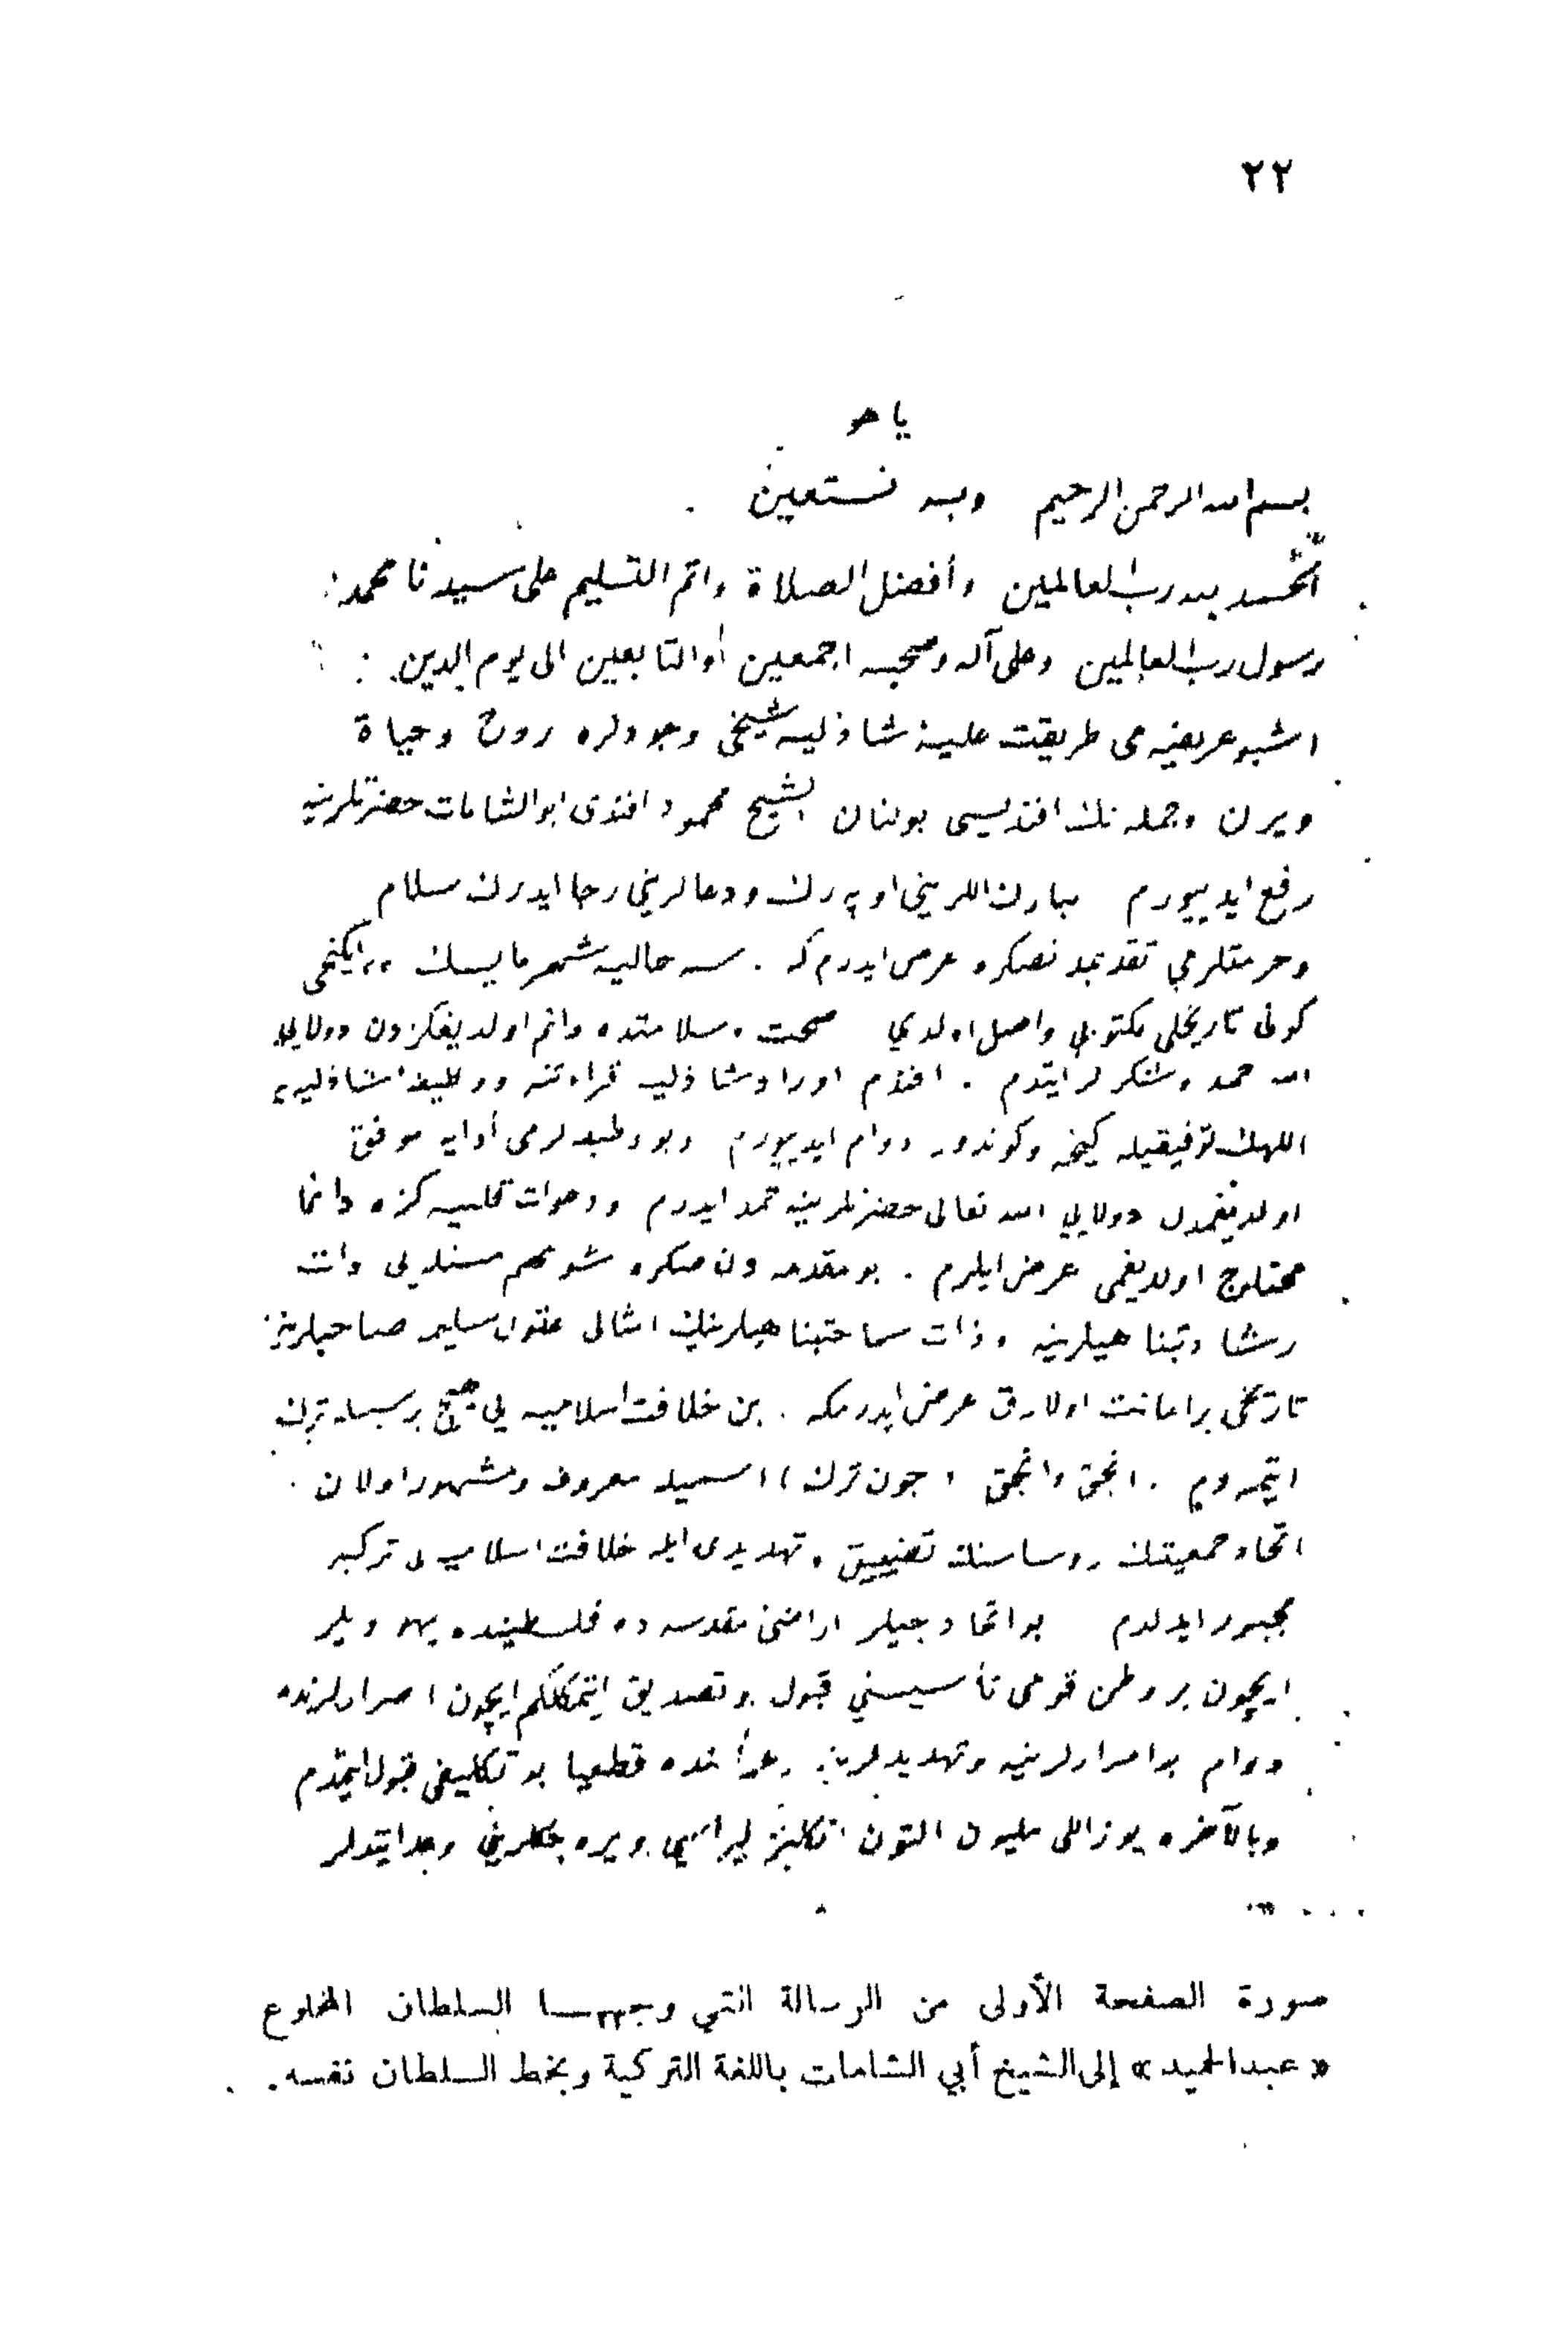 ٢٢
يا هو
بسم الله الرحمن الرحيم وبه نستعين
الحمد لله رب العالمين وأفضل الصلاة واتم التسليم على سيدنا محمد
رسول رب العالمين وعلى آله وصحبه اجمعين والتابعين الى يوم الدين
اشبو عريضه مى طريقت عليهٔ شاذليه شيخى وجودلره روح وحياة
ويرن وجمله نك افنديسى بولنان الشيخ محمود افندى ابو الشامات حضرتلرينه
رفع ايدييورم مبارك اللرينى اوپه رك ودعالرينى رجا ايدرك سلام
وحرمتلرمي تقديمدنصكره عرض ايدرم كه . سنه حاليه شهر مايسك ٢٢ ايكنجى
كونى تاريخلى مكتوبي واصل اولدي صحت وسلامتده دائم اولديغكزدن دولايى
الله حمد وشكرلر ايتدم . افندم اوراد شاذليه قراءتنه ووظيفهٔ شاذليه يه
اللهك توفيقيله كيجه وكوندوز دوام ايدييورم وبو وظيفه لرمى أدايه موفق
اولديغمدن دولايى الله تعالى حضرتلرينه حمد ايدرم ودعوات قلبيه كزه دائما
محتاج اولديغمى عرض ايلرم . بو مقدمه دن صكره شو مهم مسئله يى ذات
رشادتپناهيلرينه وذات سماحتپناهيلرينك امثالى عقول سليمه صاحبلرينه
تاريخى بر امانت اولارق عرض ايدرمكه . بن خلافت اسلاميه يى هيچ بر سببله ترك
ايتمه دم . انجق وانجق (جون ترك) اسميله معروف ومشهور اولان
اتحاد جمعيتنك رؤساسنك تضييق وتهديدى ايله خلافت اسلاميه يى تركه
مجبور ايدلدم بو اتحادجيلر اراضئ مقدسه ده فلسطينده يهوديلر
ايچون بر وطن قومى تأسيسنى قبول وتصديق ايتمكلكم ايچون اصرارلرنده
دوام بو اصرارلرينه وتهديدلرينه رغماً بنده قطعيا بو تكليفى قبول ايتمدم
وبالآخره يوز اللى مليون التون انكليز ليراسى ويره جكلرينى وعد ايتديلر
صورة الصفحة الأولى من الرسالة التي وجهها السلطان المخلوع
« عبدالحميد » إلى الشيخ أبي الشامات باللغة التركية وبخط السلطان نفسه .